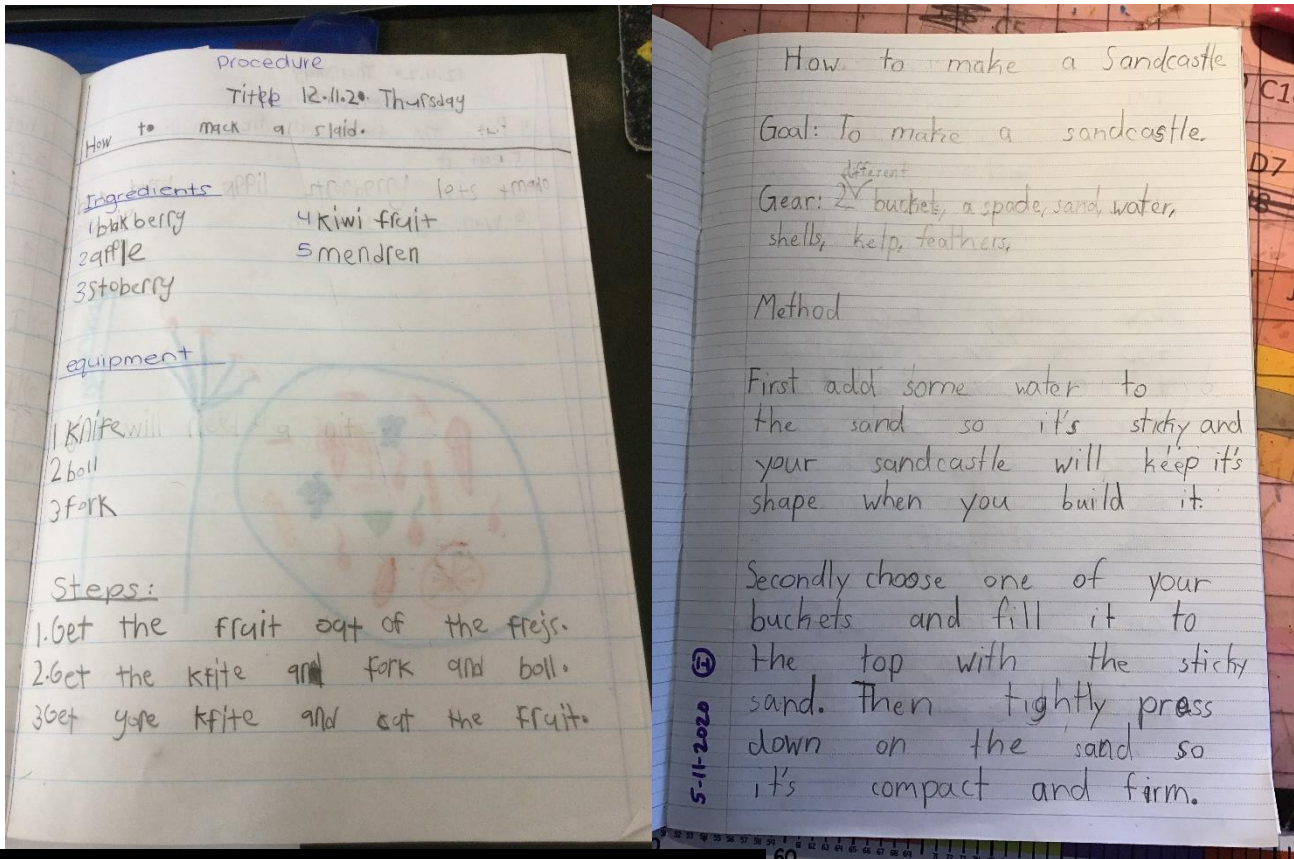 Procedure
Title 12.11.20. Thursday
How to mack a slaid.
Ingredients
1 blakberry
2 apple
3 stoberry
4 Kiwi fruit
5 mendren
equipment
1 Knife
2 boll
3 fork
Steps:
1. Get the fruit oat of the frejs.
2. Get the kfite and fork and boll.
3 Get yore kfite and cat the fruit.
How to make a Sandcastle
Goal: To make a sandcastle.
different
Gear: 2 buckets, a spade, sand, water,
shells, kelp, feathers,
Method
First add some water to
the sand so it's sticky and
your sandcastle will keep it's
shape when you build it.
Secondly choose one of your
buckets and fill it to
the top with the sticky
sand. Then tightly press
down on the sand so
it's compact and firm.
5-11-2020
C1
D7
60